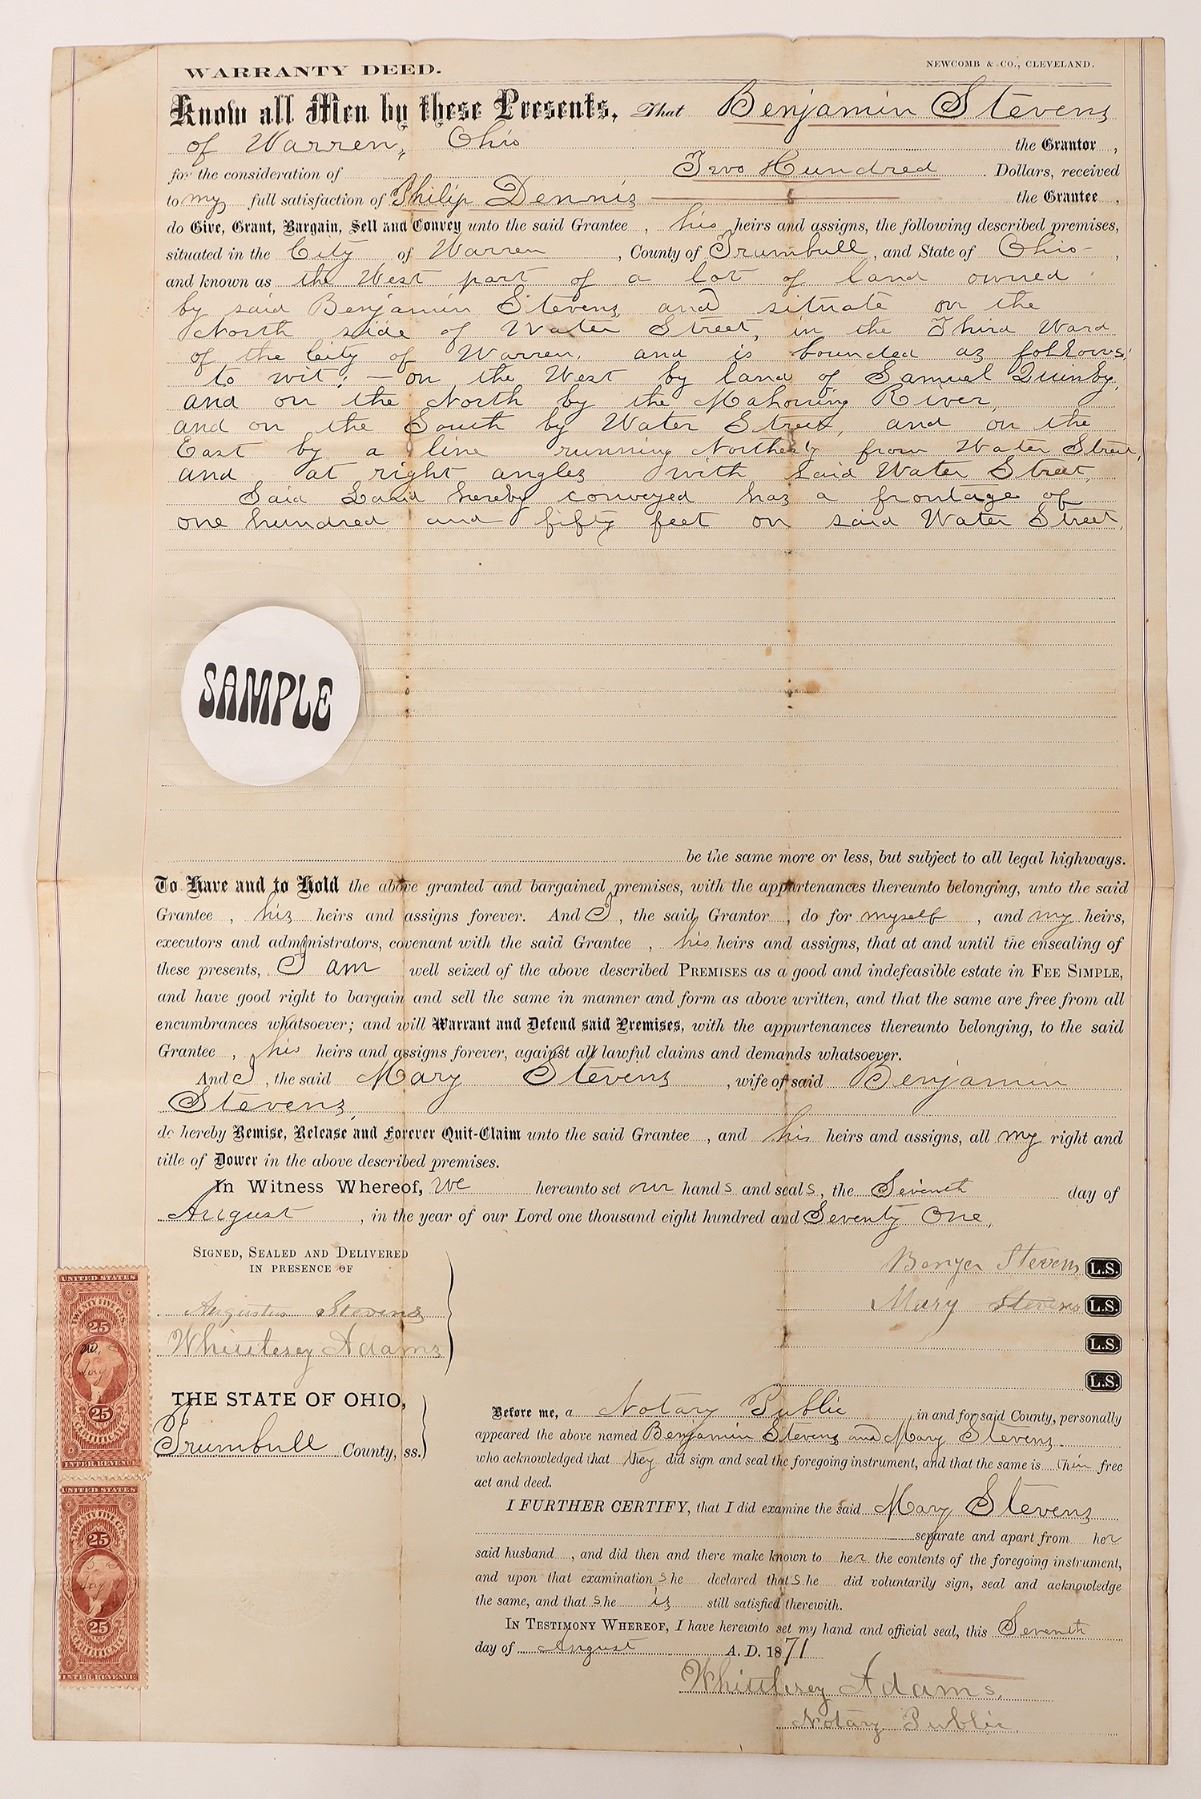 WARRANTY DEED.
NEWCOMB & CO., CLEVELAND.
Know all Men by these Presents, That Benjamin Stevens
of Warren, Ohio the Grantor ,
for the consideration of Two Hundred Dollars, received
to my full satisfaction of Philip Dennis the Grantee ,
do Give, Grant, Bargain, Sell and Convey unto the said Grantee , his heirs and assigns, the following described premises,
situated in the City of Warren , County of Trumbull , and State of Ohio ,
and known as the West part of a lot of land owned
by said Benjamin Stevens and situate on the
North side of Water Street, in the Third Ward
of the City of Warren, and is bounded as follows;
to wit; - on the West by land of Samuel Quinby,
and on the North by the Mahoning River,
and on the South by Water Street, and on the
East by a line running Northerly from Water Street,
and at right angles with said Water Street,
Said Land hereby conveyed has a frontage of
one hundred and fifty feet on said Water Street,
SAMPLE
be the same more or less, but subject to all legal highways.
To Have and to Hold the above granted and bargained premises, with the appurtenances thereunto belonging, unto the said
Grantee , his heirs and assigns forever. And I , the said Grantor , do for myself , and my heirs,
executors and administrators, covenant with the said Grantee , his heirs and assigns, that at and until the ensealing of
these presents, I am well seized of the above described PREMISES as a good and indefeasible estate in FEE SIMPLE,
and have good right to bargain and sell the same in manner and form as above written, and that the same are free from all
encumbrances whatsoever; and will Warrant and Defend said Premises, with the appurtenances thereunto belonging, to the said
Grantee , his heirs and assigns forever, against all lawful claims and demands whatsoever.
And I , the said Mary Stevens , wife of said Benjamin
Stevens,
do hereby Remise, Release and Forever Quit-Claim unto the said Grantee , and his heirs and assigns, all my right and
title of Dower in the above described premises.
In Witness Whereof, we hereunto set our hands and seals, the Seventh day of
August , in the year of our Lord one thousand eight hundred and Seventy One,
SIGNED, SEALED AND DELIVERED
IN PRESENCE OF
Stevens L.S.
Augustus Stevens
Mary Stevens L.S.
Whittlesey Adams
L.S.
L.S.
THE STATE OF OHIO,
Trumbull County, ss.
Before me, a Notary Public in and for said County, personally
appeared the above named Benjamin Stevens and Mary Stevens
who acknowledged that they did sign and seal the foregoing instrument, and that the same is their free
act and deed.
I FURTHER CERTIFY, that I did examine the said Mary Stevens
separate and apart from her
said husband , and did then and there make known to her the contents of the foregoing instrument,
and upon that examination she declared that she did voluntarily sign, seal and acknowledge
the same, and that she is still satisfied therewith.
IN TESTIMONY WHEREOF, I have hereunto set my hand and official seal, this Seventh
day of August A. D. 1871
Whittlesey Adams,
Notary Public.
UNITED STATES
TWENTY FIVE CTS.
25
25
CERTIFICATE
INTER. REVENUE
UNITED STATES
TWENTY FIVE CTS.
25
25
CERTIFICATE
INTER. REVENUE